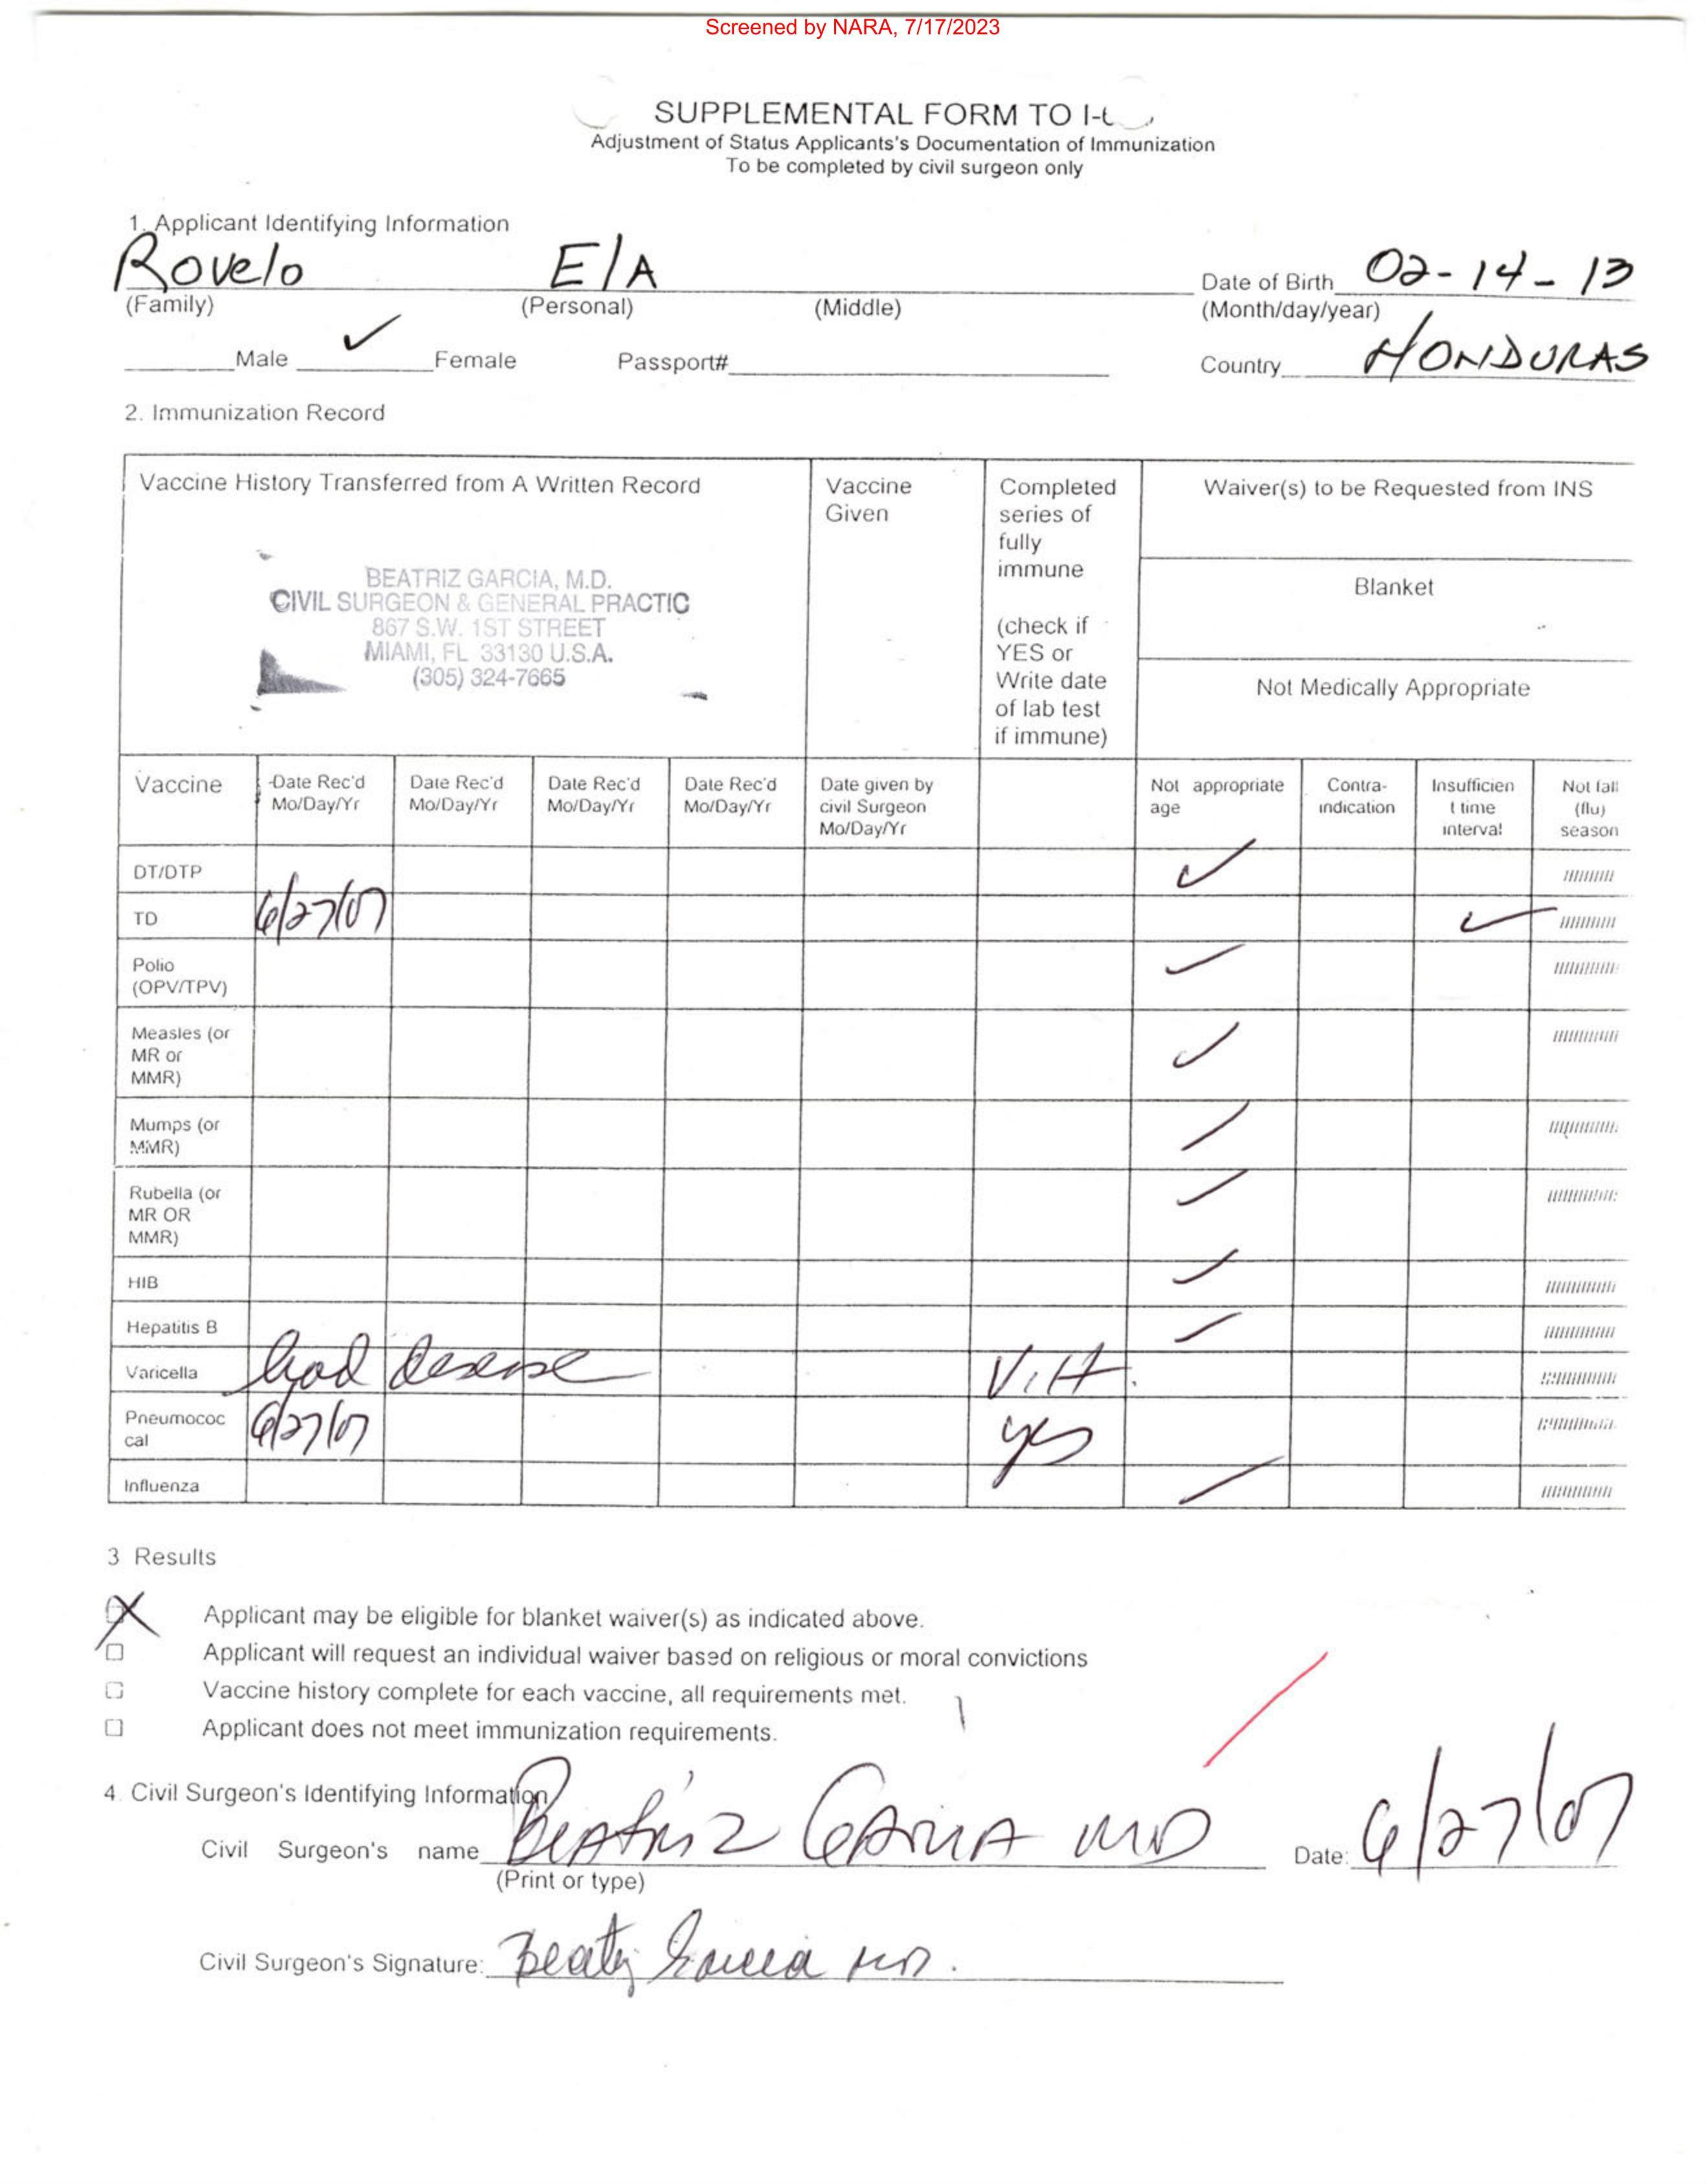 Screened by NARA, 7/17/2023
SUPPLEMENTAL FORM TO I-
Adjustment of Status Applicants's Documentation of Immunization
To be completed by civil surgeon only
1. Applicant Identifying Information
Rovelo ElA Date of Birth 02-14-13
(Family) (Personal) (Middle) (Month/day/year)
Male ✓ Female Passport# Country HONDURAS
2. Immunization Record
Vaccine History Transferred from A Written Record
BEATRIZ GARCIA, M.D.
CIVIL SURGEON & GENERAL PRACTIC
867 S.W. 1ST STREET
MIAMI, FL 33130 U.S.A.
(305) 324-7665
Vaccine
Given
Completed
series of
fully
immune
(check if
YES or
Write date
of lab test
if immune)
Waiver(s) to be Requested from INS
Blanket
Not Medically Appropriate
Vaccine
-Date Rec'd
Mo/Day/Yr
Date Rec'd
Mo/Day/Yr
Date Rec'd
Mo/Day/Yr
Date Rec'd
Mo/Day/Yr
Date given by
civil Surgeon
Mo/Day/Yr
Not appropriate
age
Contra-
indication
Insufficien
t time
interval
Not fall
(flu)
season
DT/DTP ✓
TD 6/27/07 ✓
Polio ✓
(OPV/TPV)
Measles (or ✓
MR or
MMR)
Mumps (or
MMR)
Rubella (or ✓
MR OR
MMR)
HIB ✓
Hepatitis B ✓
Varicella had desease V.H.
Pneumococ 6/27/07 yes
cal
Influenza
3 Results
X Applicant may be eligible for blanket waiver(s) as indicated above.
Applicant will request an individual waiver based on religious or moral convictions
Vaccine history complete for each vaccine, all requirements met.
Applicant does not meet immunization requirements.
4. Civil Surgeon's Identifying Information
Civil Surgeon's name Beatriz GARCIA MD Date: 6/27/07
(Print or type)
Civil Surgeon's Signature: Beatriz Garcia MD.